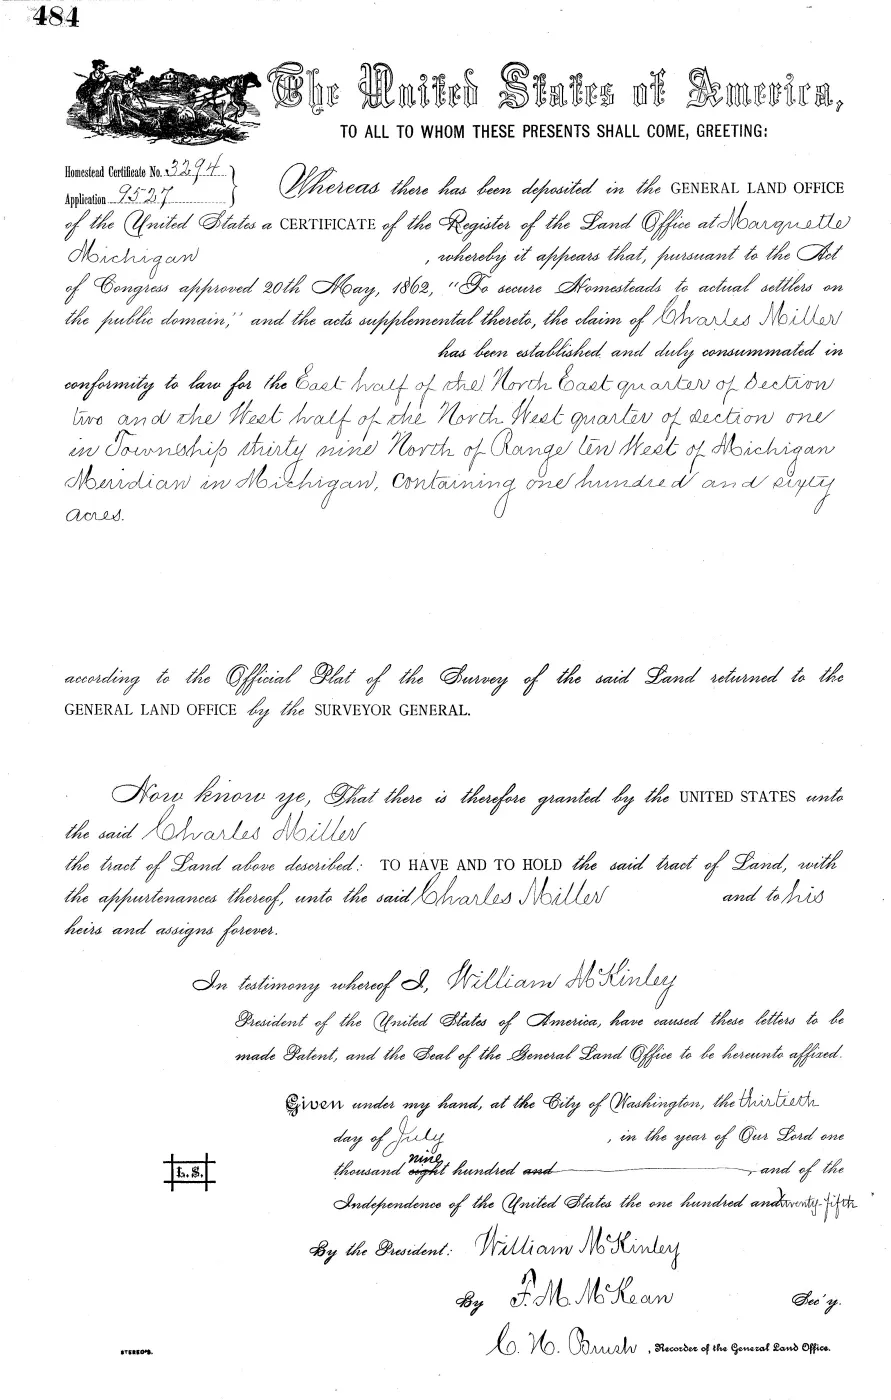 484
The United States of America,
TO ALL TO WHOM THESE PRESENTS SHALL COME, GREETING:
Homestead Certificate No. 3294
Application 9527
Whereas there has been deposited in the GENERAL LAND OFFICE
of the United States a CERTIFICATE of the Register of the Land Office at Marquette
Michigan , whereby it appears that, pursuant to the Act
of Congress approved 20th May, 1862, "To secure Homesteads to actual settlers on
the public domain," and the acts supplemental thereto, the claim of Charles Miller
has been established and duly consummated in
conformity to law for the East half of the North East quarter of Section
two and the West half of the North West quarter of section one
in Township thirty nine North of Range ten West of Michigan
Meridian in Michigan, containing one hundred and sixty
acres.
according to the Official Plat of the Survey of the said Land returned to the
GENERAL LAND OFFICE by the SURVEYOR GENERAL.
Now know ye, That there is therefore granted by the UNITED STATES unto
the said Charles Miller
the tract of Land above described: TO HAVE AND TO HOLD the said tract of Land, with
the appurtenances thereof, unto the said Charles Miller and to his
heirs and assigns forever.
In testimony whereof I, William McKinley
President of the United States of America, have caused these letters to be
made Patent, and the Seal of the General Land Office to be hereunto affixed.
Given under my hand, at the City of Washington, the thirtieth
day of July , in the year of Our Lord one
thousand nine eight hundred and , and of the
Independence of the United States the one hundred and twenty-fifth
L.S.
By the President: William McKinley
By F. M. McKean Sec'y.
C. H. Brush, Recorder of the General Land Office.
STEREO'S.